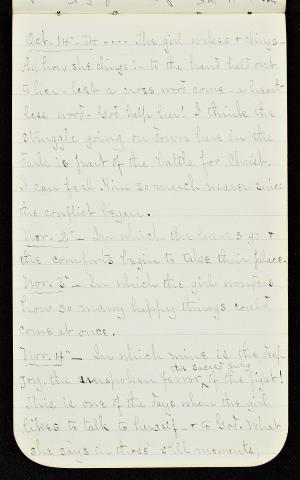 Oct. 14"-74 .... The girl wakes & clings -
Ah, how she clings! - to the hand held out
to her - lest a cross word come - a heart-
less word - God help her! I think the
struggle going on down here in the
dark is part of the battle for Christ.
I can feel Him so much nearer since
the conflict began.
Nov. 2" - In which the leaves go &
the comforts begin to take their place.
Nov. 3" - In which the girl wonders
how so many happy things could
come at once.
Nov. 4" - In which mine is the deep
joy, the unspoken fervor, the sacred fury of the fight!
This is one of the days when the girl
likes to talk to herself - & to God. What
she says in those still moments,